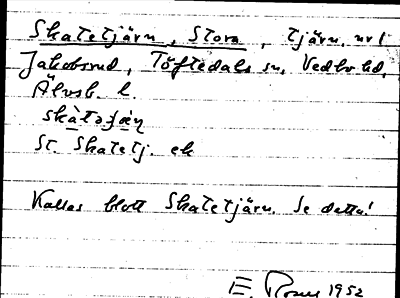 Skatetjärn, Stora, tjärn, nr 1
Jakobsrud, Töftedals sn, Vedbo hd,
Älvsb. l.
St. Skatetj. ek
Kallas blott Skatetjärn. Se detta!
E. 1952